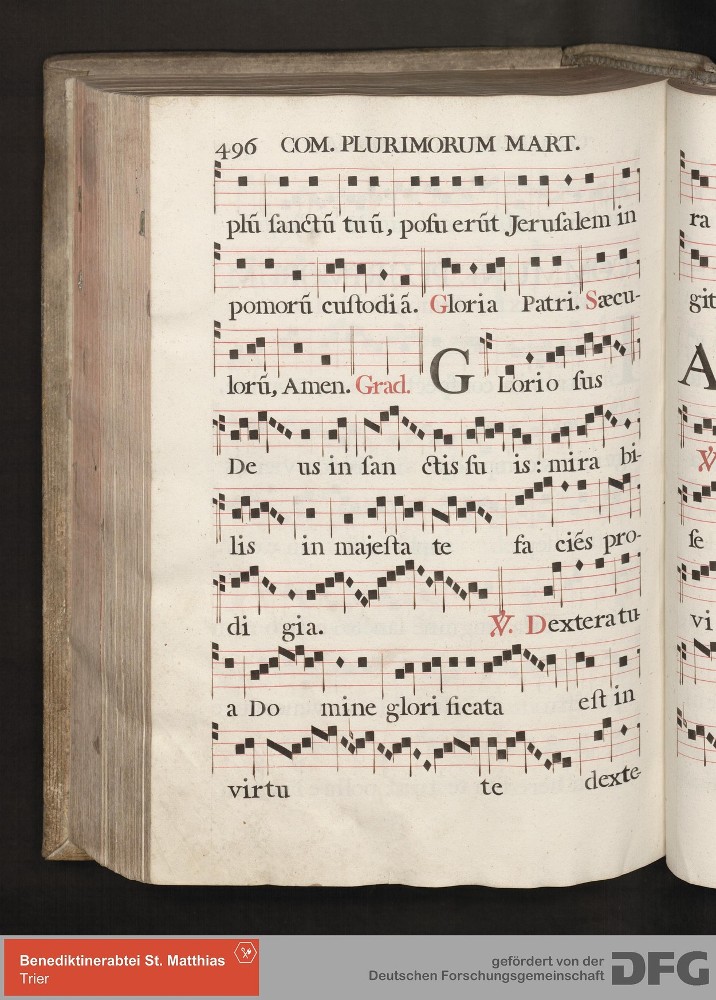 496 COM. PLURIMORUM MART.
plũ ſanctũ tuũ, poſuerũt Jeruſalem in
pomorũ cuſtodiã. Gloria Patri. Sæcu-
lorũ, Amen. Grad. GLorioſus
Deus in ſanctis ſuis: mirabi-
lis in majeſtate faciẽs pro-
digia. ℣. Dextera tu-
a Domine glorificata eſt in
virtute dexte-
ra
git
A
℣
ſe
vi
Benediktinerabtei St. Matthias
Trier
gefördert von der
Deutschen Forschungsgemeinschaft DFG